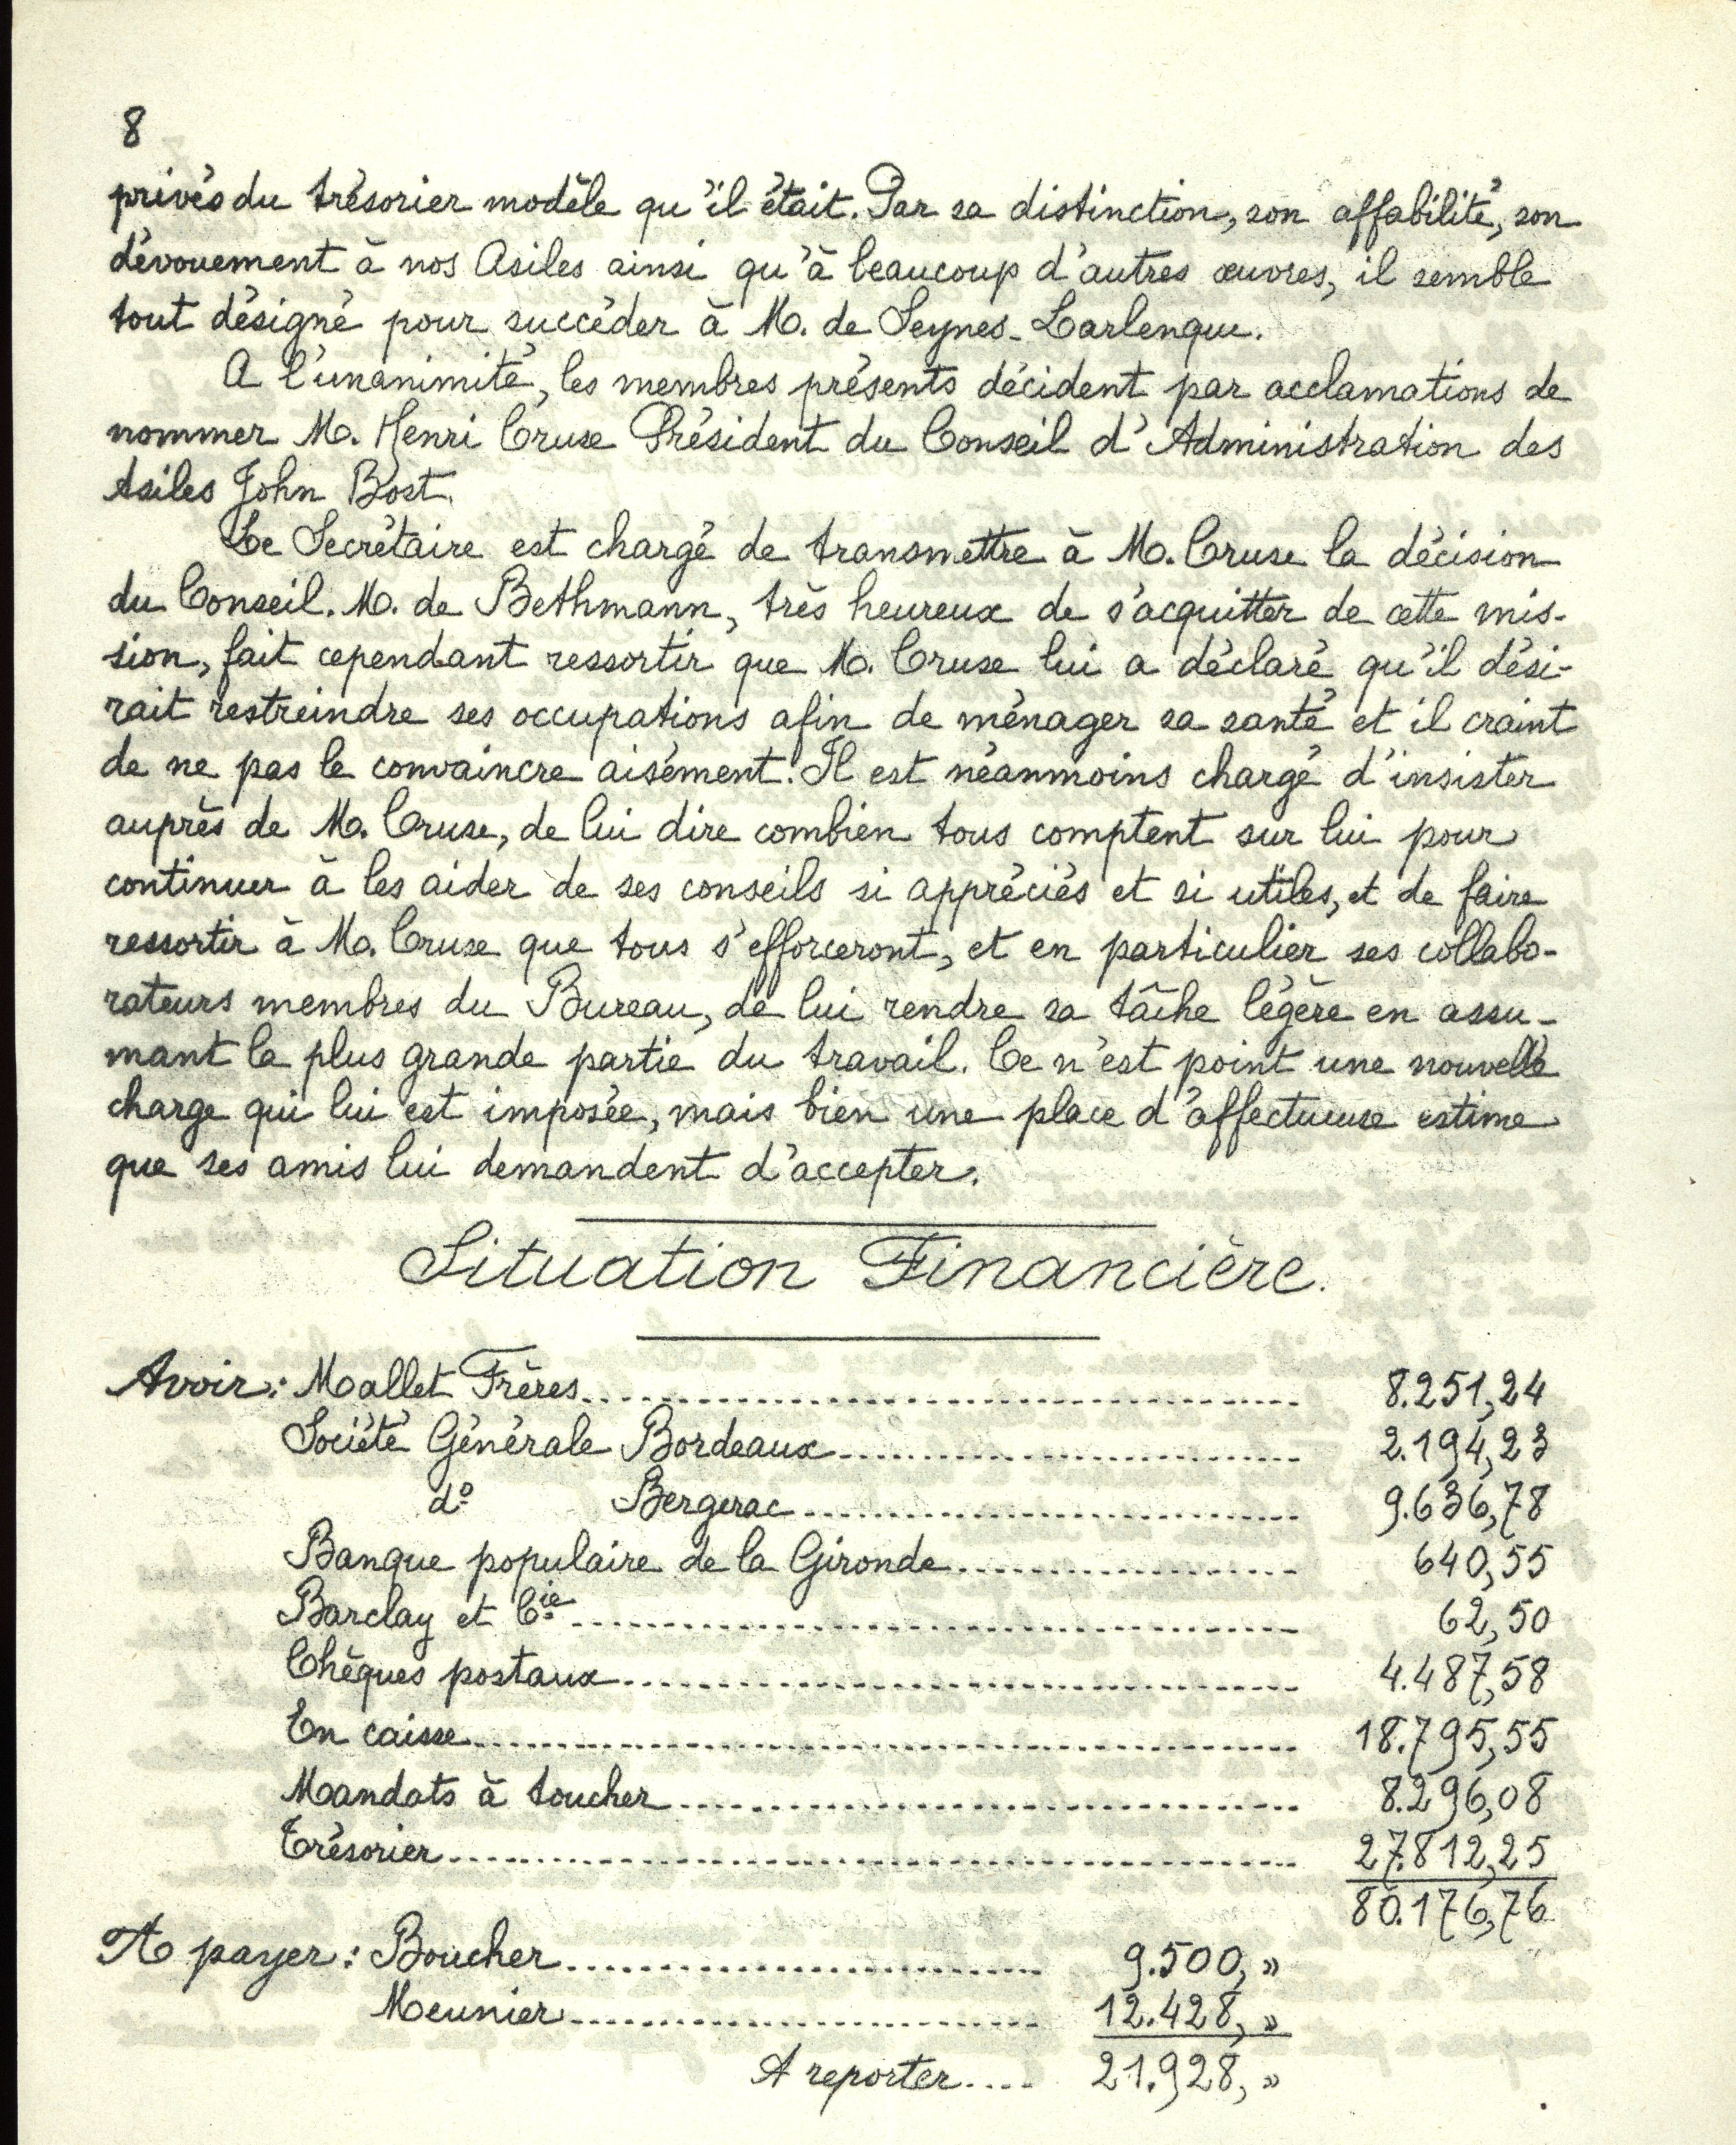 8
privés du trésorier modèle qu'il était. Par sa distinction, son affabilité, son
dévouement à nos Asiles ainsi qu'à beaucoup d'autres œuvres, il semble
tout désigné pour succéder à M. de Seynes-Larlenque.
A l'unanimité, les membres présents décident par acclamations de
nommer M. Henri Cruse Président du Conseil d'Administration des
Asiles John Bost.
Le Secrétaire est chargé de transmettre à M. Cruse la décision
du Conseil. M. de Bethmann, très heureux de s'acquitter de cette mis-
sion, fait cependant ressortir que M. Cruse lui a déclaré qu'il dési-
rait restreindre ses occupations afin de ménager sa santé et il craint
de ne pas le convaincre aisément. Il est néanmoins chargé d'insister
auprès de M. Cruse, de lui dire combien tous comptent sur lui pour
continuer à les aider de ses conseils si appréciés et si utiles, et de faire
ressortir à M. Cruse que tous s'efforceront, et en particulier ses collabo-
rateurs membres du Bureau, de lui rendre sa tâche légère en assu-
mant la plus grande partie du travail. Ce n'est point une nouvelle
charge qui lui est imposée, mais bien une place d'affectueuse estime
que ses amis lui demandent d'accepter.
Situation Financière.
Avoir: Mallet Frères........ 8.251,24
Société Générale Bordeaux........ 2.194,23
dº Bergerac........ 9.636,78
Banque populaire de la Gironde........ 640,55
Barclay et Cie........ 62,50
Chèques postaux........ 4.487,58
En caisse........ 18.795,55
Mandats à toucher........ 8.296,08
Trésorier........ 27.812,25
80.176,76
A payer: Boucher........ 9.500, »
Meunier........ 12.428, »
A reporter.... 21.928, »